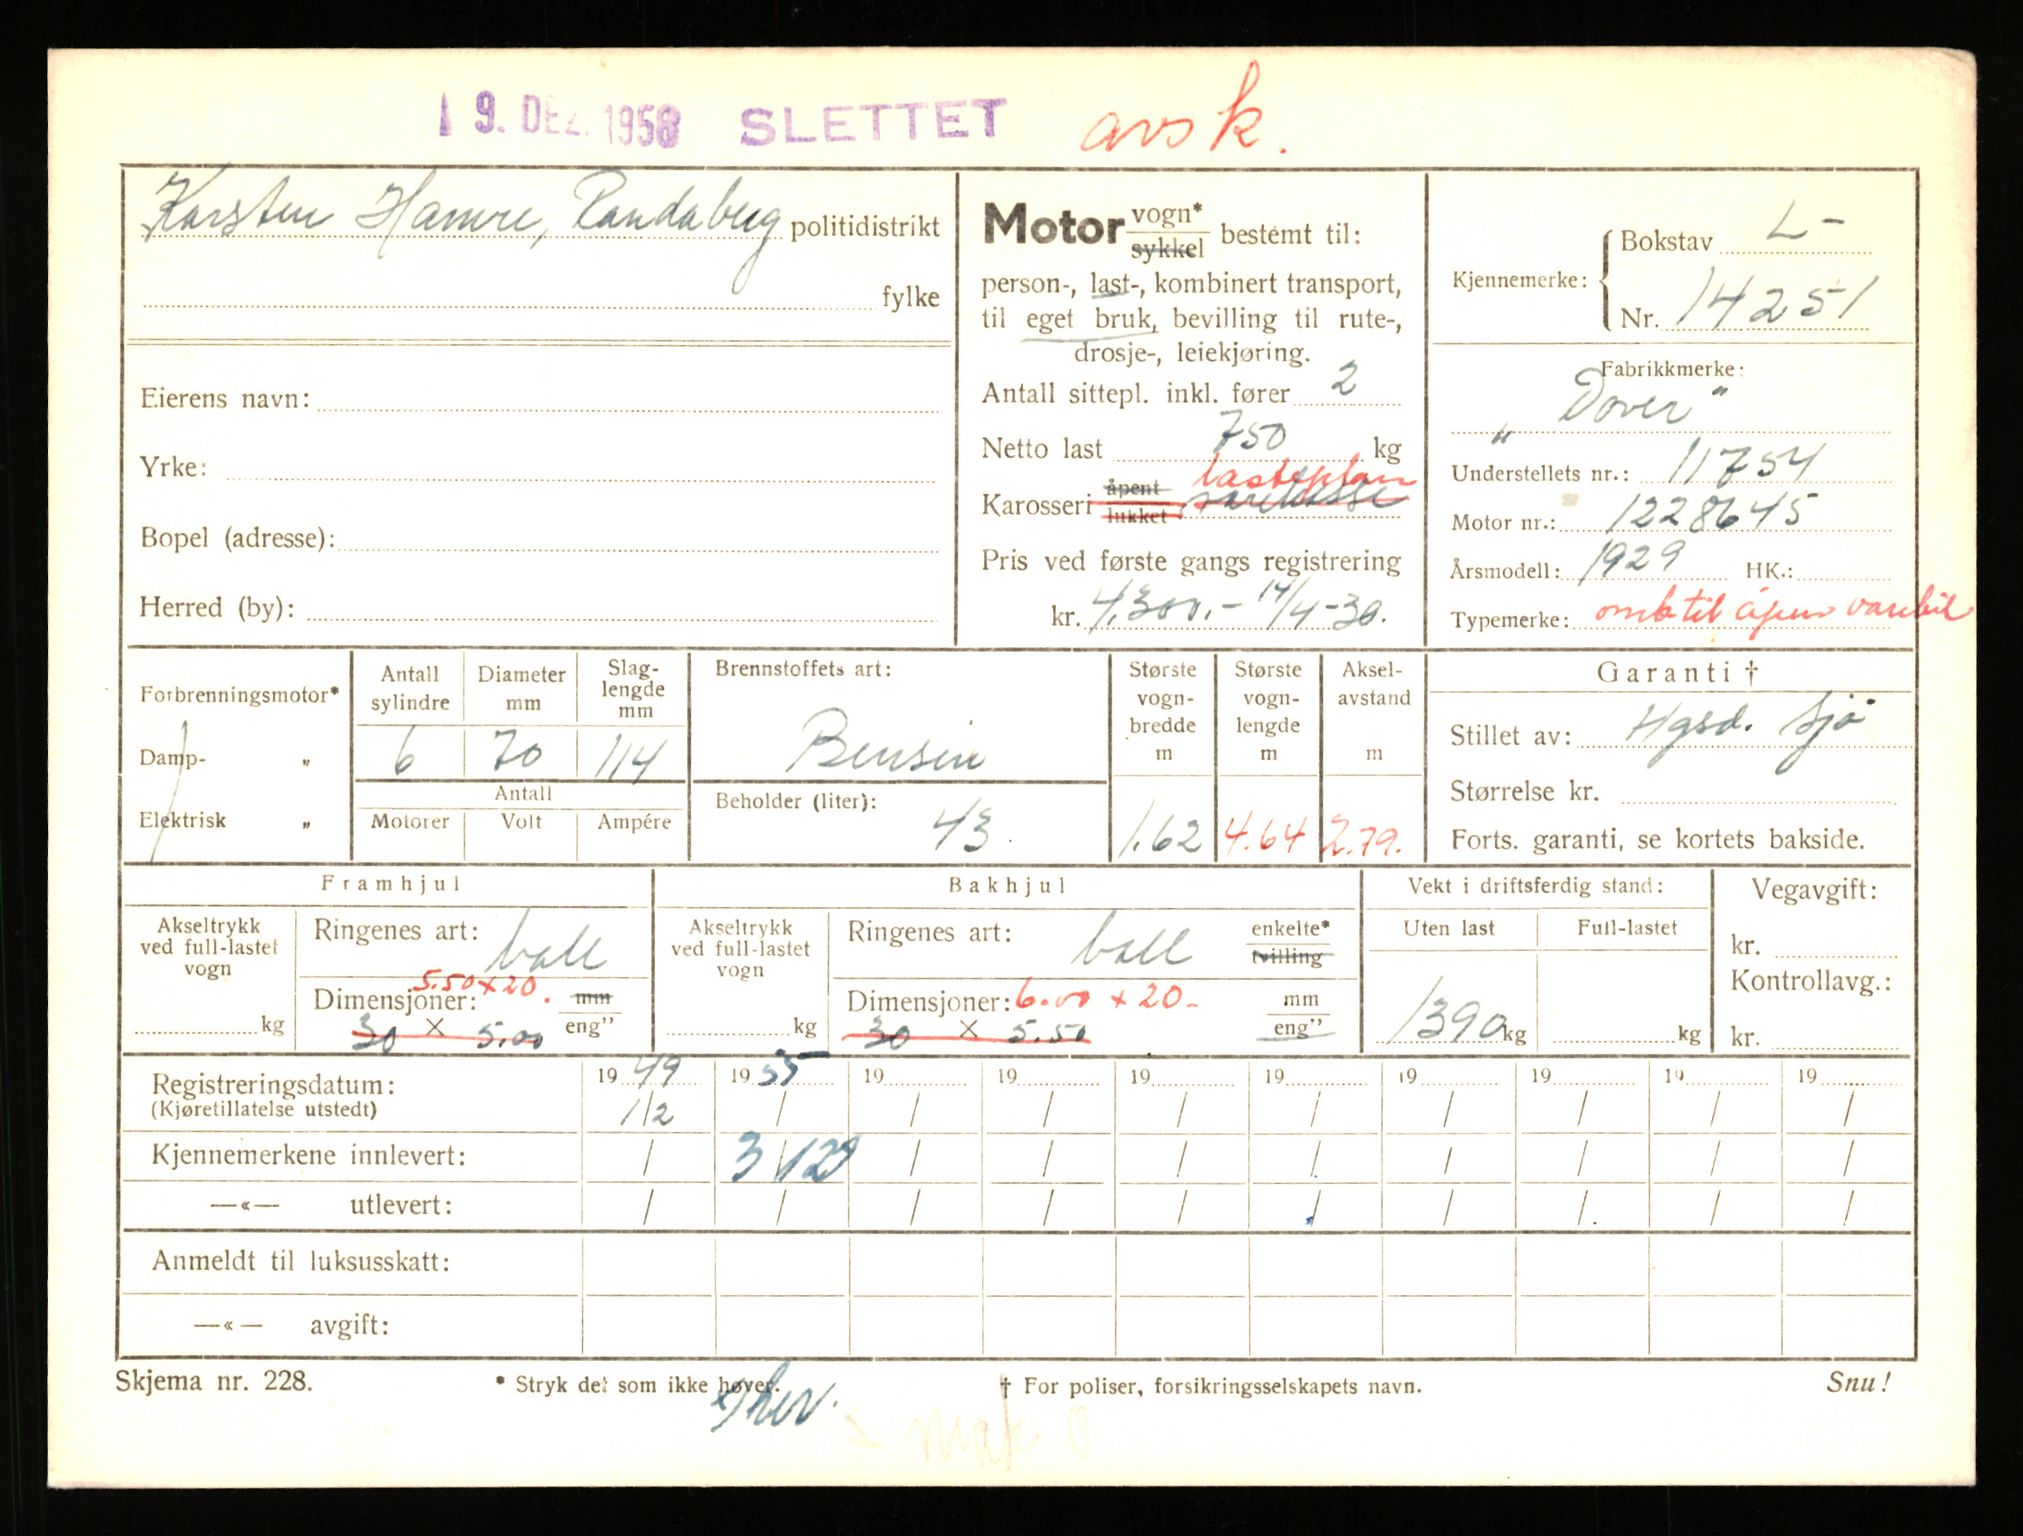 19. DEZ. 1958 SLETTET avsk.
Karsten Hamre, Randaberg politidistrikt
fylke
Eierens navn:
Yrke:
Bopel (adresse):
Herred (by):
Motor vogn* sykkel bestemt til:
person-, last-, kombinert transport,
til eget bruk, bevilling til rute-,
drosje-, leiekjøring.
Antall sittepl. inkl. fører 2
Netto last 750 kg
lasteplan
Karosseri åpent lukket, varekasse
Pris ved første gangs registrering
kr. 4.300.- 14/4-30.
Kjennemerke: Bokstav L-
Nr. 14251
Fabrikkmerke:
„Dover"
Understellets nr.: 11754
Motor nr.: 1228645
Årsmodell: 1929 HK.:
Typemerke: omb til åpen varebil
Forbrenningsmotor*
Damp- „
Elektrisk „
Antall sylindre Diameter mm Slaglengde mm
6 70 114
Antall
Motorer Volt Ampére
Brennstoffets art:
Bensin
Beholder (liter):
43
Største vogn-bredde m Største vogn-lengde m Aksel-avstand m
1.62 4.64 2.79.
Garanti †
Stillet av: Hgsd. Sjø
Størrelse kr.
Forts. garanti, se kortets bakside.
Framhjul
Akseltrykk ved full-lastet vogn
kg
Ringenes art: ball
5.50 x 20.
Dimensjoner: mm
30 X 5.00 eng"
Bakhjul
Akseltrykk ved full-lastet vogn
kg
Ringenes art: ball enkelte* tvilling
Dimensjoner: 6.00 x 20- mm
30 X 5.50 eng"
Vekt i driftsferdig stand:
Uten last Full-lastet
1390 kg kg
Vegavgift:
kr.
Kontrollavg.:
kr.
Registreringsdatum: 1949 1955 19 19 19 19 19 19 19 19
(Kjøretillatelse utstedt) 1/2 / / / / / / / / /
Kjennemerkene innlevert: / 3/12 / / / / / / / /
—«— utlevert: / / / / / / / / / /
Anmeldt til luksusskatt:
—«— avgift:
Skjema nr. 228. * Stryk det som ikke høver. † For poliser, forsikringsselskapets navn. Snu!